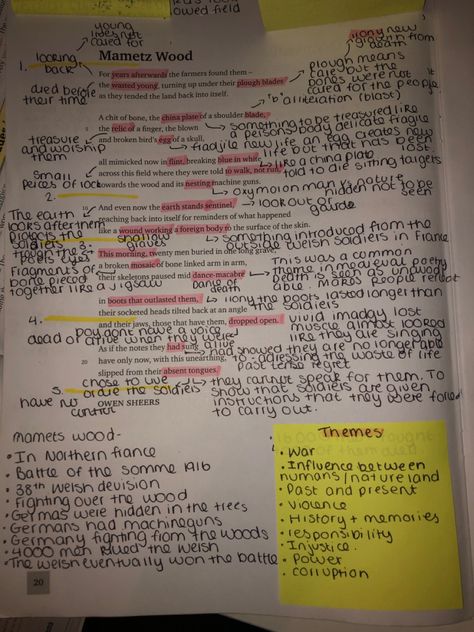 owed field
young
lives not
cared for
looking
back
1.
Mametz Wood
irony new
growth from
death
plough means
care but the
bones were not
cared for the people
For years afterwards the farmers found them –
the wasted young, turning up under their plough blades
as they tended the land back into itself.
died before
their time
"b" alliteration (blast)
A chit of bone, the china plate of a shoulder blade,
the relic of a finger, the blown
and broken bird's egg of a skull,
something to be treasured like
a persons body delicate fragile
fradjile new life an egg creates new
life but that has been
lost
treasure
and worship
them
all mimicked now in flint, breaking blue in white
across this field where they were told to walk, not run,
towards the wood and its nesting machine guns.
like a china plate
told to die sitting targets
small
peices of rock
oxymoron man vs nature
hidden not to be
2.
And even now the earth stands sentinel,
reaching back into itself for reminders of what happened
like a wound working a foreign body to the surface of the skin.
look out or
guarde
The earth
looks after them
protects the
soldiers
shallow
graves
something introduced from the
outside welsh soldiers in France
3.
This morning, twenty men buried in one long grave,
a broken mosaic of bone linked arm in arm,
their skeletons paused mid dance-macabre
fragments of
bone pieced
together like a jigsaw
dance of
death
This was a common
theme in medieval poetry
death is seen as unavoid
able. makes people reflect
in boots that outlasted them,
their socketed heads tilted back at an angle
and their jaws, those that have them, dropped open.
irony the boots lasted longer than
the soldiers
vivid imaday lost
muscle almost looked
like they are singing
4.
poy dont have a voice
dead or alive when they were
alive
As if the notes they had sung
have only now, with this unearthing,
slipped from their absent tongues.
had showed they are no longerable
to. adressing the waste of life
past tense regret
5.
chose to use
OWEN SHEERS
they cannot speak for them. To
show that soldiers are given
instructions that they were forced
to carry out.
have no
control
mametz wood-
• In Northern france
• Battle of the somme 1916
• 38th welsh devision
• Fighting over the wood
• Germas were hidden in the trees
• Germans had machineguns
• Germany fighting from the woods
• 4000 men killed the welsh
• The welsh eventually won the battle
Themes
• War
• Influence between
humans/nature land
• Past and present
• violence
• History + memories
• responsibility
• Injustice.
• Power
• corruption
20